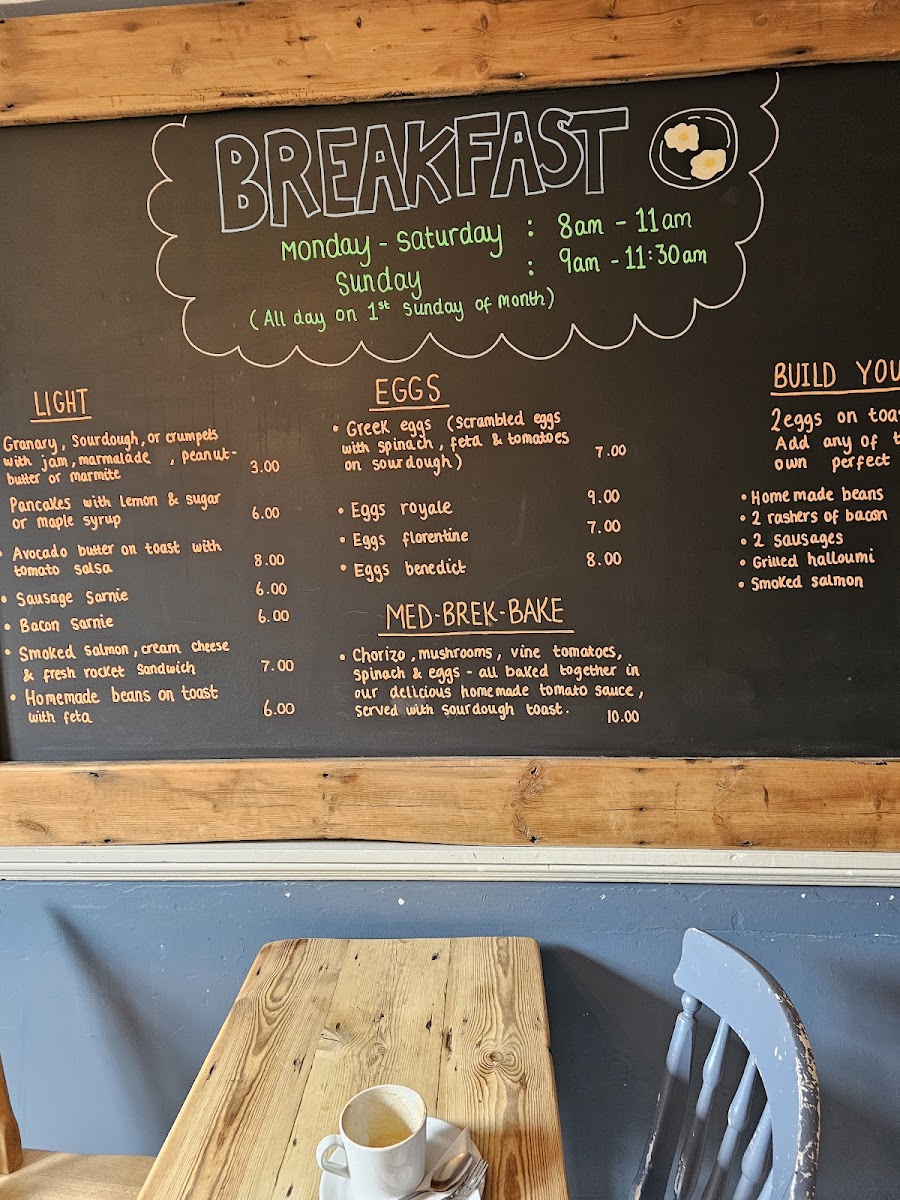 BREAKFAST
Monday - Saturday : 8am - 11am
Sunday : 9am - 11:30am
(All day on 1st Sunday of month)
LIGHT
Granary, Sourdough, or crumpets
with jam, marmalade , peanut-
butter or marmite 3.00
Pancakes with lemon & sugar
or maple syrup 6.00
• Avocado butter on toast with
tomato salsa 8.00
• Sausage Sarnie 6.00
• Bacon Sarnie 6.00
• Smoked salmon, cream cheese
& fresh rocket sandwich 7.00
• Homemade beans on toast
with feta 6.00
EGGS
• Greek eggs (scrambled eggs
with spinach, feta & tomatoes
on sourdough) 7.00
• Eggs royale 9.00
• Eggs florentine 7.00
• Eggs benedict 8.00
MED-BREK-BAKE
• Chorizo, mushrooms, vine tomatoes,
spinach & eggs - all baked together in
our delicious homemade tomato sauce,
served with sourdough toast. 10.00
BUILD YOU
2 eggs on toa
Add any of t
own perfect
• Homemade beans
• 2 rashers of bacon
• 2 sausages
• Grilled halloumi
• Smoked salmon